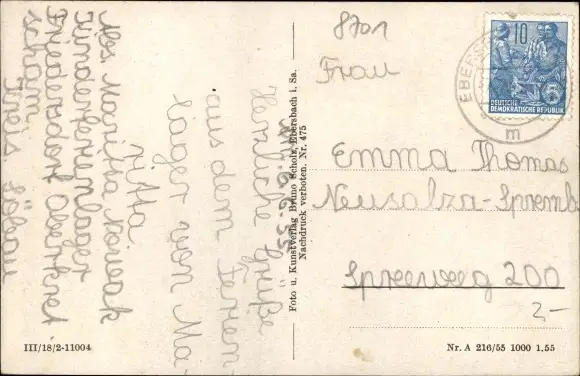 d. 4.6.55
Herzliche Grüße
aus dem Ferien-
lager von Ma-
ritta
Abs. Maritta Noveak
Kinderferienlager
Friedersdorf Oberkret
scham
Kreis Löbau
Foto u. Kunstverlag Bruno Scholz, Ebersbach i. Sa.
Nachdruck verboten. Nr. 475
8701
Frau
Emma Thomas
Neusalza-Spremb
Spreeweg 200
2,-
EBERS
m
10
5
DEUTSCHE
DEMOKRATISCHE REPUBLIK
III/18/2-11004
Nr. A 216/55 1000 1.55